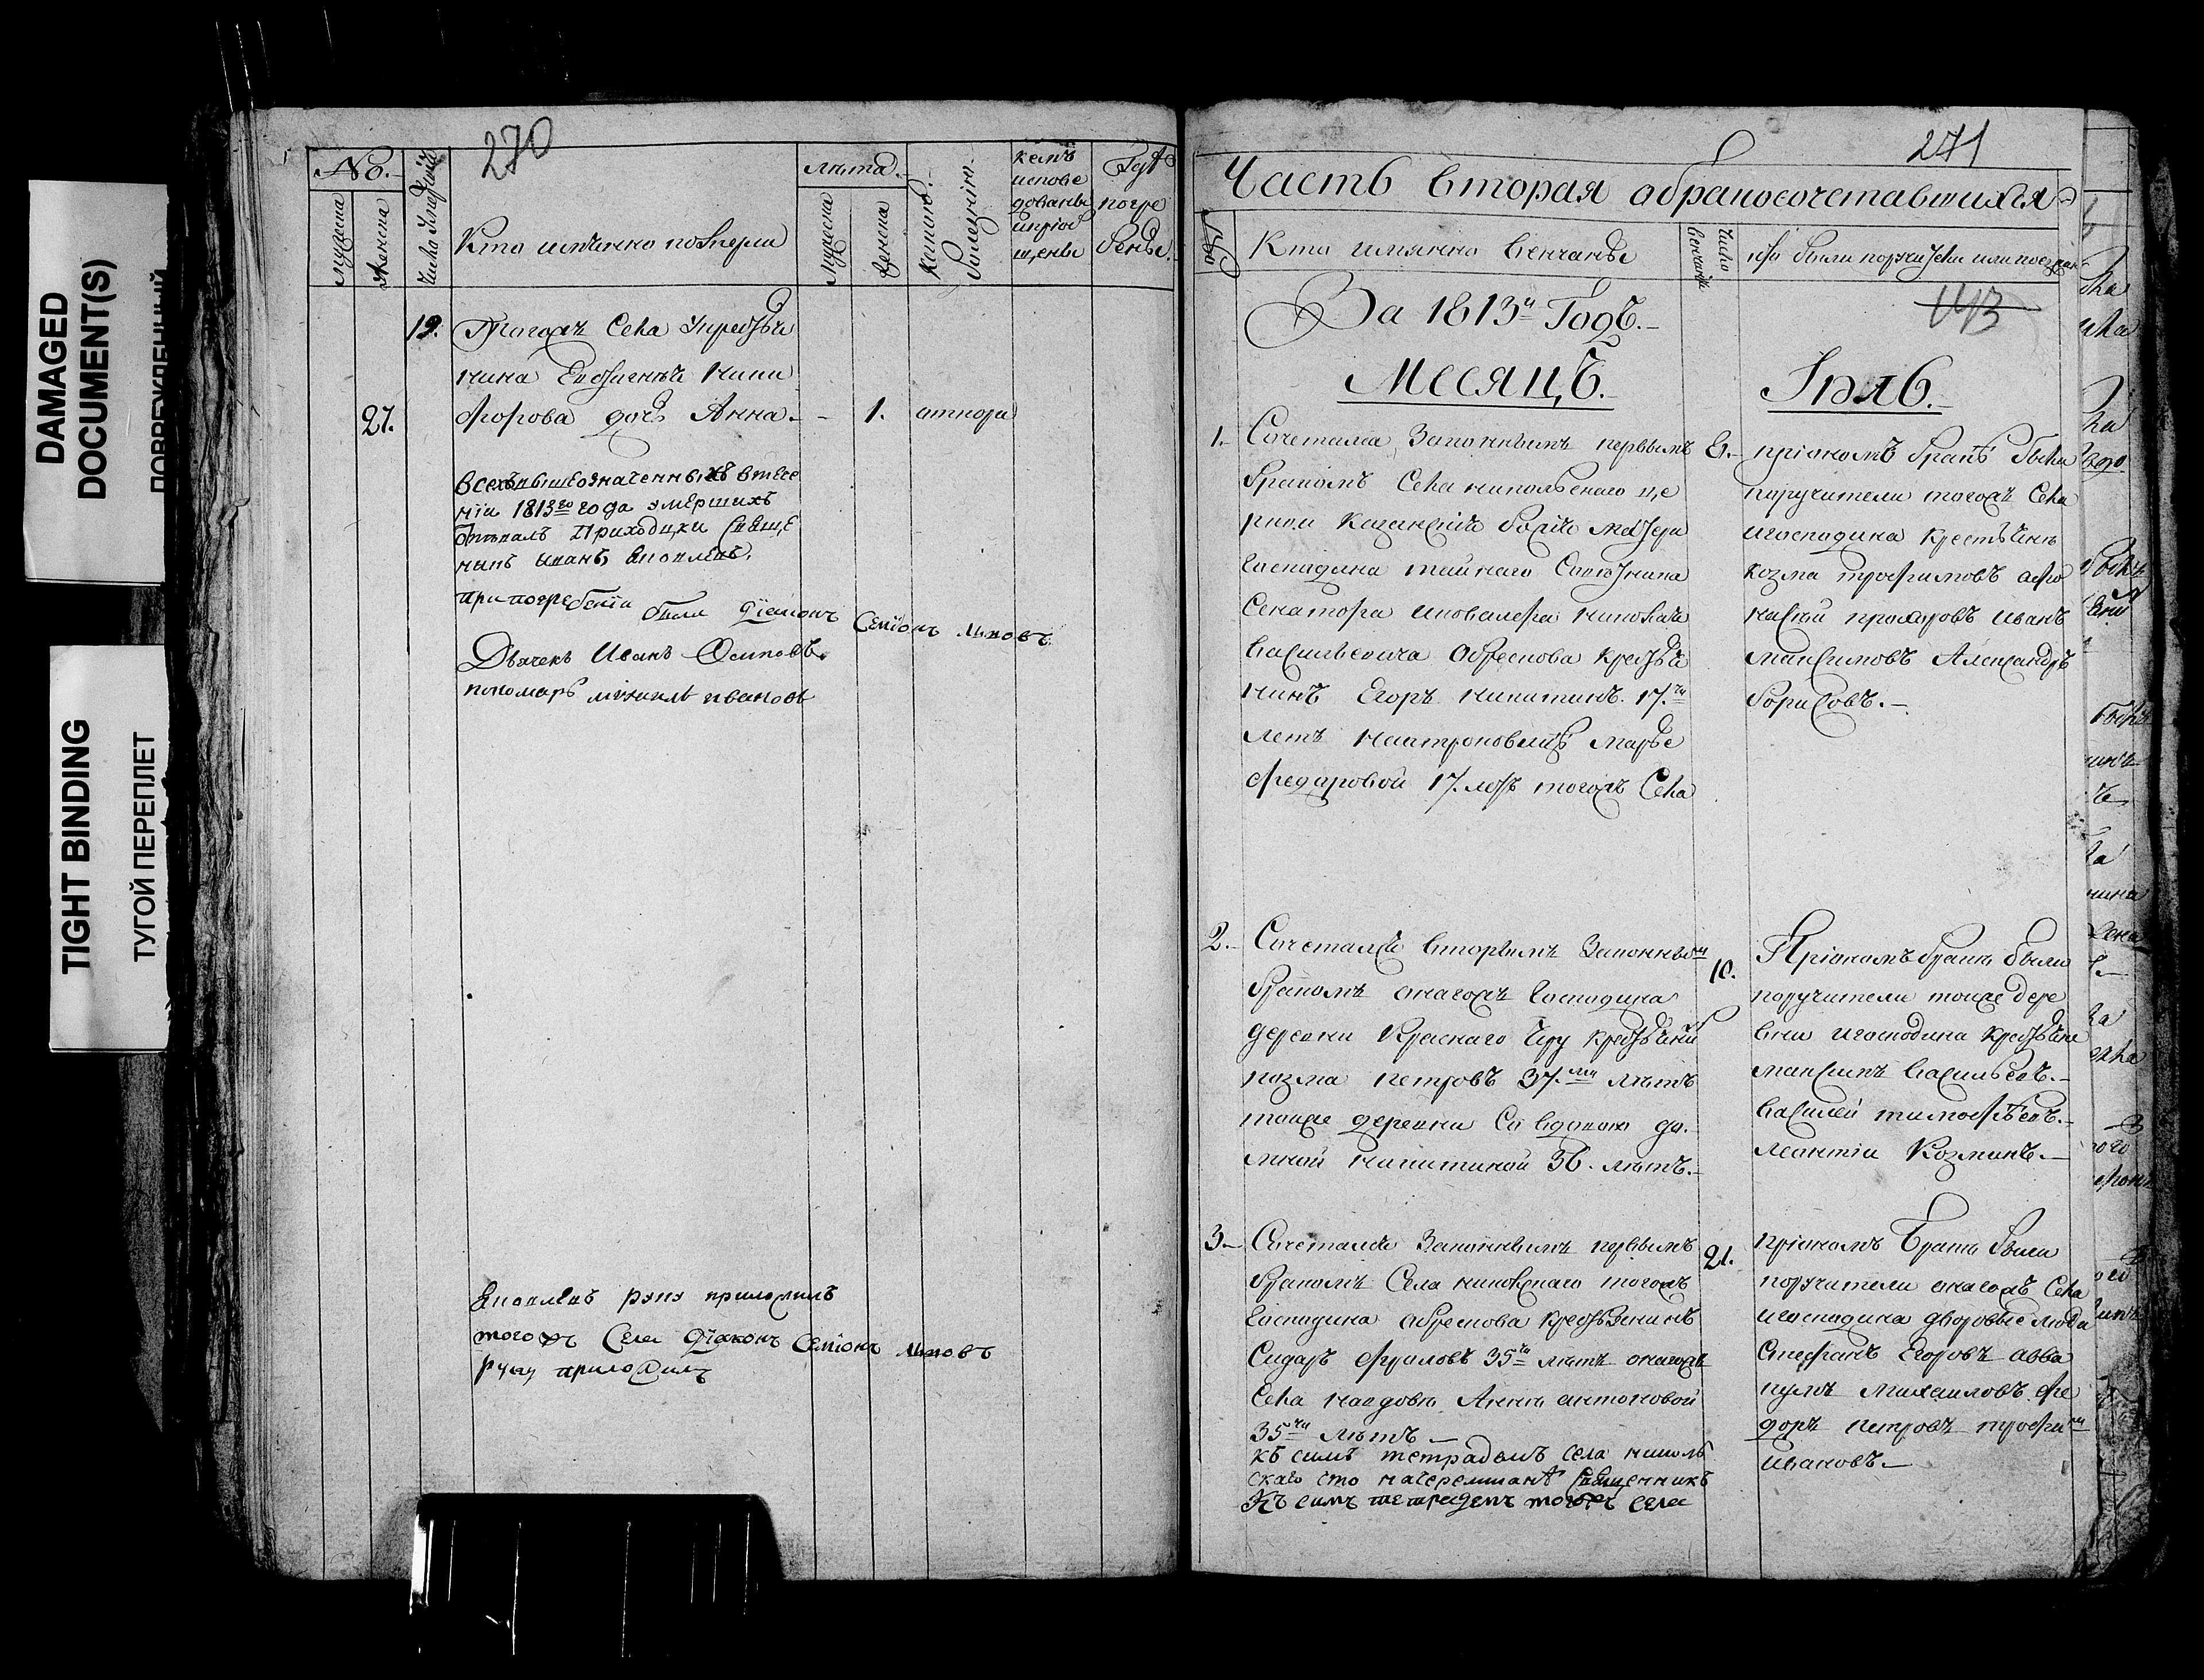 DAMAGED
DOCUMENT(S)
ПОВРЕЖДЕННЫЙ
TIGHT BINDING
ТУГОЙ ПЕРЕПЛЕТ
270
No.
мужеска
женска
Кто имянно померли
лѣта.
мужеска
женска
кемъ
испове
дованы
погре
бены.
19. Тогожъ Села
нина Ники
27. форова дочь Анна. - 1. отпора
всехъ вышеозначенныхъ втече
нiи 1813го года умершихъ
отпевалъ Приходцки Свяще
никъ иванъ Яковлевъ.
при погребенiи были дiаконъ Семiонъ
Дьячекъ Иванъ Осиповъ.
пономарь михаилъ ивановъ
Яковлевъ руку приложилъ
того жъ Села дiаконъ Семiонъ
руку приложилъ
271
Часть вторая обракосочетавшихся
No
Кто имянно венчаны
число
кто были поручители или поезжан
143
За 1813й Годъ.
Месяцъ. Iюль.
1. Сочетался Законнымъ первымъ
бракомъ Села никольскаго це
ркви казанскiя божiя матери
Господина тайнаго Советника
Сенатора икавалера николая
васильевича обрескова крестья
нинъ Егоръ никитинъ. 17.ти
летъ марье
федаровой 17. летъ тогожъ Села
6. приономъ браке были
поручители тогожъ Села
игосподина крестьяне
козма трофимовъ афо
насiй прохоровъ иванъ
максимовъ Александръ
борисовъ.
2. Сочетался вторымъ Законным
бракомъ онагожъ Господина
деревни Краснаго крестьянинъ
козма петровъ 37.ми лѣтъ
тоиже деревни Со вдовою до
мной никитиной 36. лѣтъ.
10. Приономъ браке были
поручители тоиже дере
вни игосподина крестьяне
максимъ васильевъ.
василей тимофѣевъ.
леонтiи Козминъ.
3. Сочетался Законнымъ первымъ
бракомъ Села никольскаго тогожъ
Господина обрескова крестьянинъ
Сидаръ 35ти лѣтъ онагожъ
Села навдове Анне антоновой
35ти лѣтъ
21. приономъ браке были
поручители онагожъ Села
игосподина дворовые люди
Стефанъ Егоровъ авва
кумъ михаиловъ фе
доръ петровъ трофим
ивановъ.
къ симъ тетрадямъ села николь
скаго что начеремшане священникъ
Къ симъ тетрадемъ тогожъ села